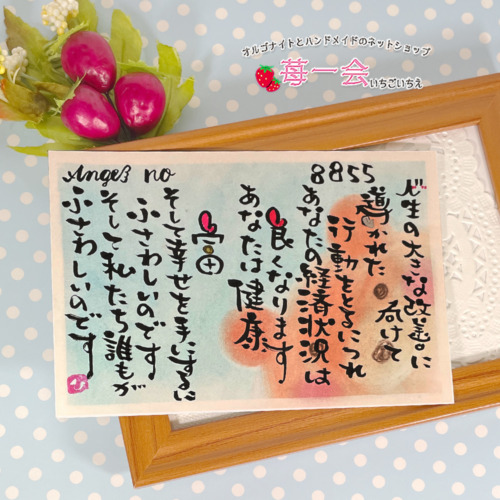 オルゴナイトとハンドメイドのネットショップ
苺一会
いちごいちえ
Angel no
8855
人生の大きな改善に
向けて
導かれた
行動をとるにつれ
あなたの経済状況は
良くなります
あなたは健康、
富
そして幸せを手にするに
ふさわしいのです
そして私たち誰もが
ふさわしいのです